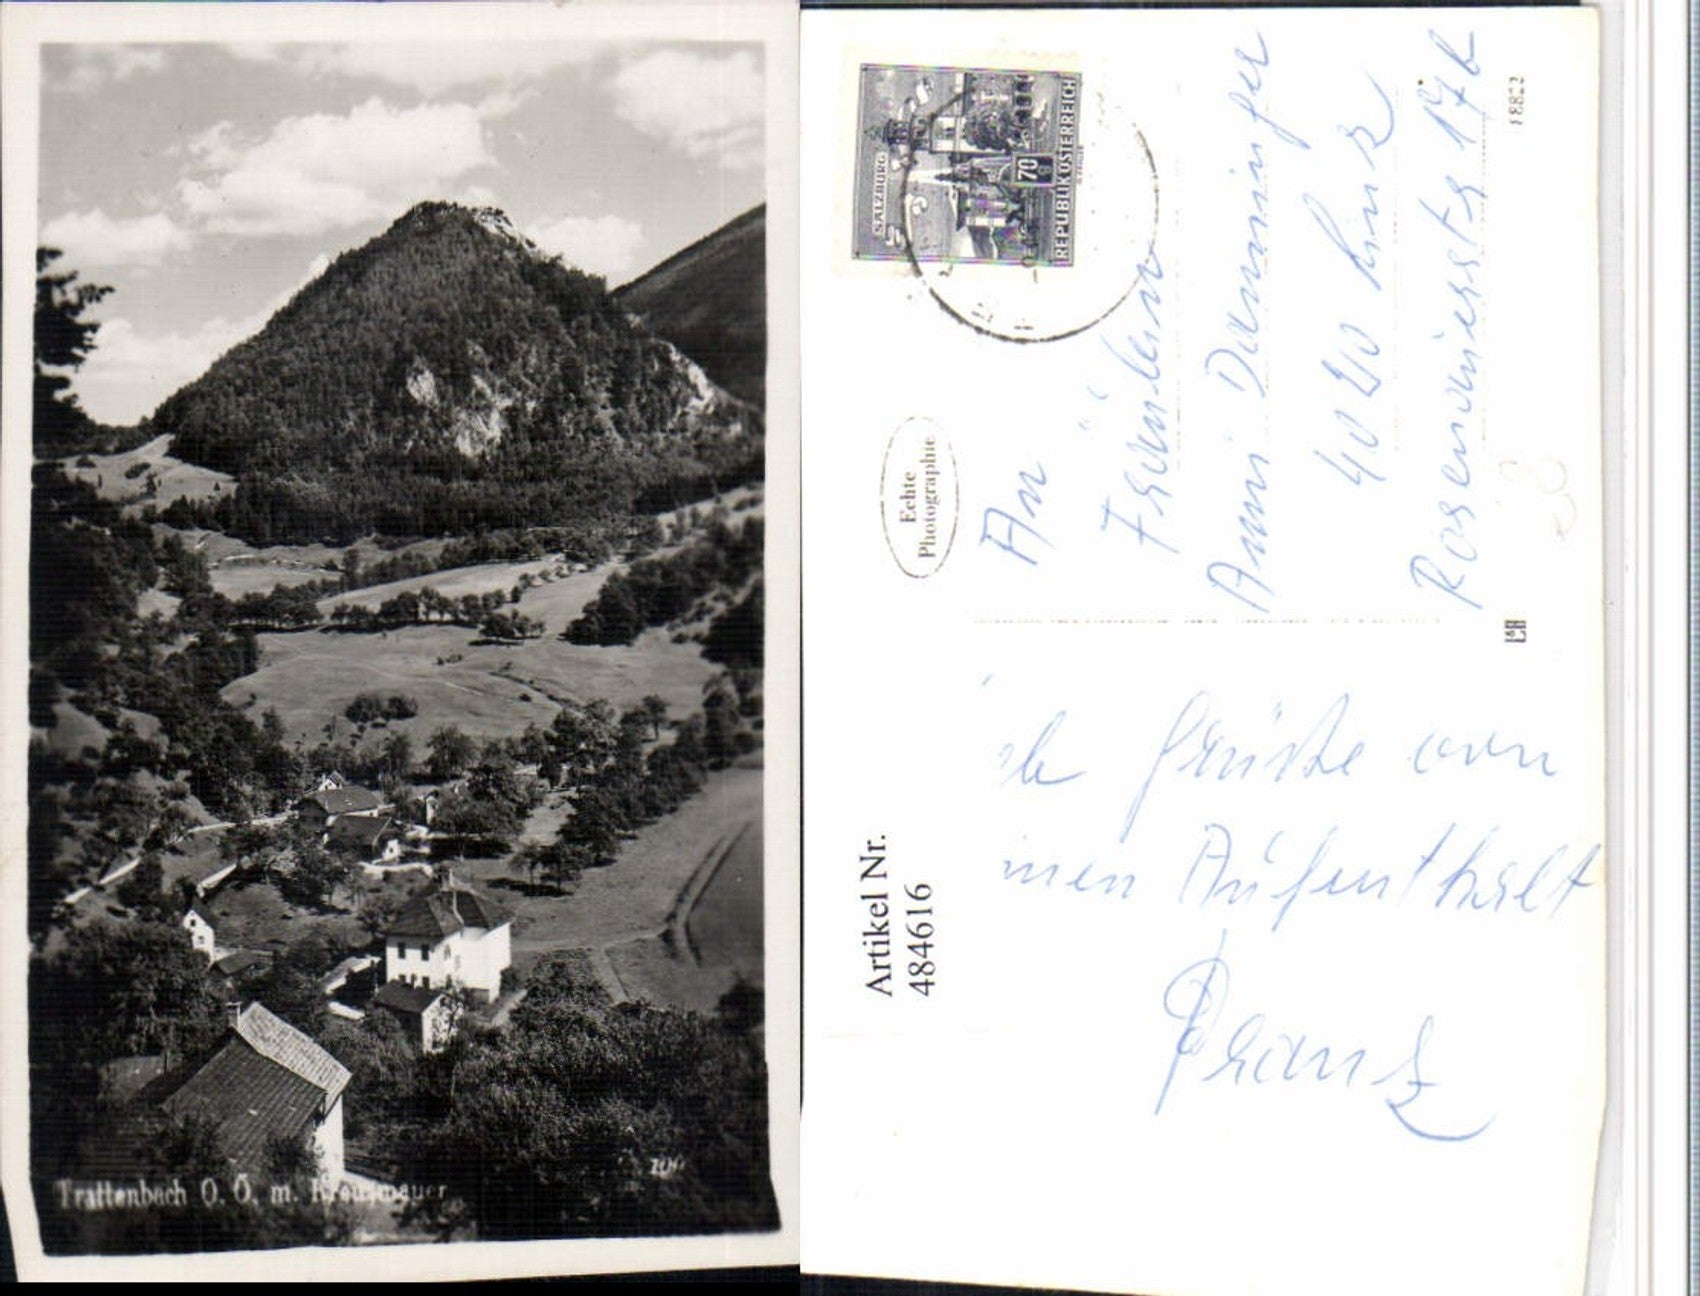 Trattenbach O. Ö. m. Kreuzmauer
SALZBURG
70
REPUBLIK ÖSTERREICH
Echte
Photographie
An
Fräulein
Anni Danninger
4020 Linz
Rosenauerstr 17b
18822
Grüße von
Aufenthalt
Franz
Artikel Nr.
484616